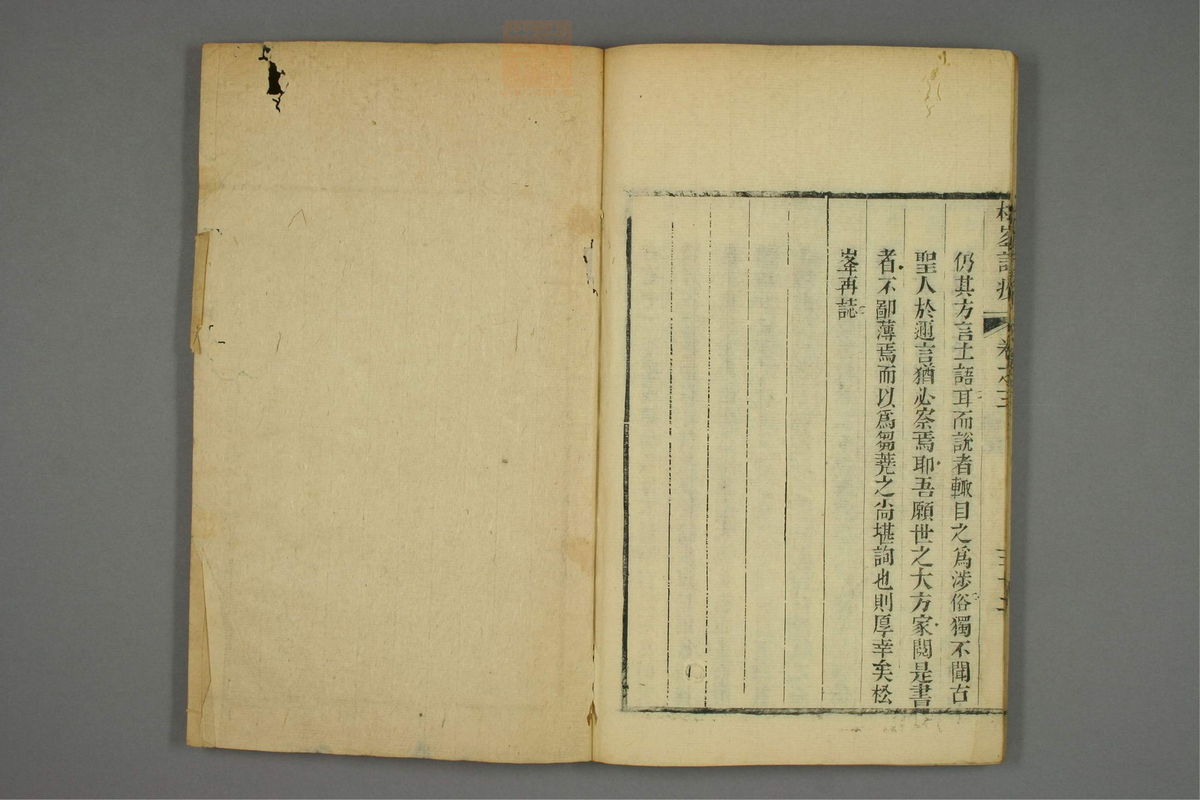 松峯說疫
卷之三
仍其方言土語耳而說者輙目之爲涉俗獨不聞古
聖人於邇言猶必察焉耶吾願世之大方家閱是書
者不鄙薄焉而以爲芻蕘之尚堪詢也則厚幸矣松
峯再誌